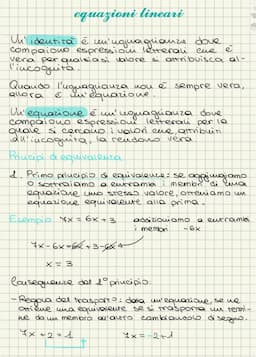 equazioni lineari
Un'identità é un'uguaglianza dove
compaiono espressioni letterali che é
vera per qualsiasi valore si attribuisca al-
l'incognita.
Quando l'uguaglianza non é sempre vera,
allora é un'equazione.
Un'equazione é un'uguaglianza dove
compaiono espressioni letterali per la
quale si cercano i valori che, attribuiti
all'incognita, la rendono vera
Principi di equivalenza
1. Primo principio di equivalenza: se aggiungiamo
o sottraiamo a entrambi i membri di una
equazione uno stesso valore, otteniamo un
equazione equivalente alla prima.
Esempio 7x = 6x + 3 addizioniamo a entrambi
i membri -6x
7x - 6x = 6x + 3 - 6x
x = 3
Conseguenze del 1° principio:
- Regola del trasporto: data un'equazione, se ne
ottiene una equivalente se si trasporta un termi-
ne da un membro all'altro cambiandolo di segno.
7x + 2 = 1 7x = -2 + 1